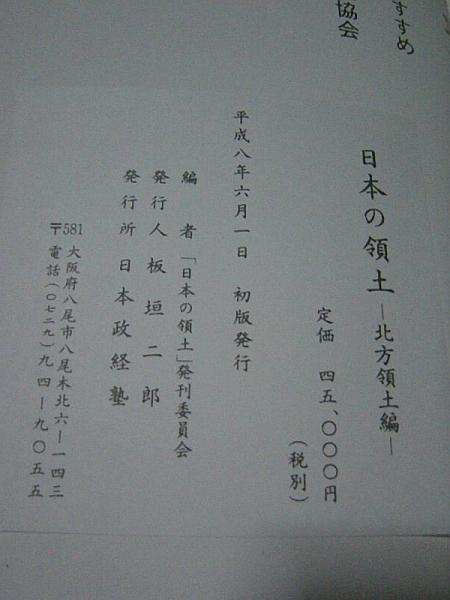 すすめ
協会
日本の領土―北方領土編―
定価 四五、〇〇〇円
(税別)
平成八年六月一日 初版発行
編者 「日本の領土」発刊委員会
発行人 板垣二郎
発行所 日本政経塾
〒581 大阪府八尾市八尾木北六―一四三
電話(〇七二九)九四―九〇五五